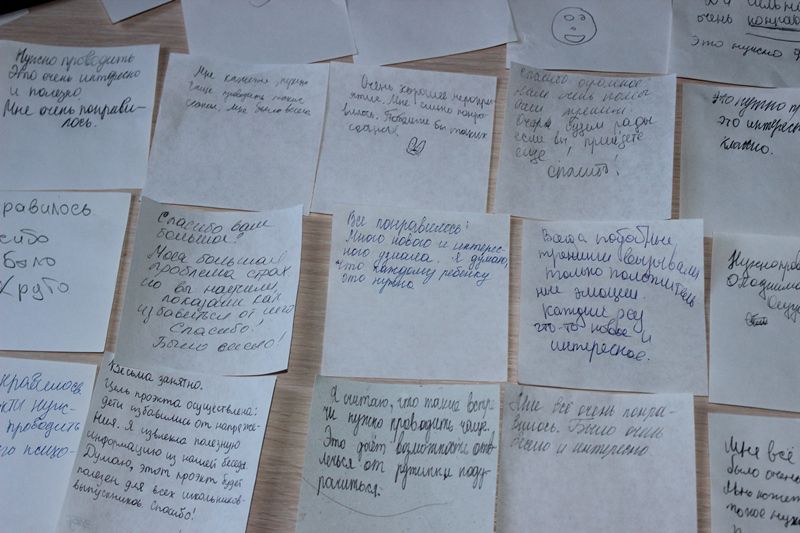 очень понрав
Это нужно
Нужно проводить
Это очень интересно
и полезно
Мне очень понрави-
лось.
Мне кажется, нужно
чаще проводить такие
Мне было весело
Очень хорошее меропри-
ятие. Мне сильно понра-
вилось. Побольше бы таких
Спасибо огромное
Вам очень
Ваш тренинг
Очень будем рады
если вы приедете
ещё!
Спасибо!
Это нужно пр
это интерес
классно.
равилось
сибо
было
Круто
Спасибо вам
большое!
Моя большая
проблема страх
но вы научили,
показали как
избавиться от него
Спасибо!
Было весело!
Все понравилось!
Много нового и интерес-
ного узнала. Я думаю,
что каждому ребенку
это нужно
Ваши подобные
тренинги вызывали
только положитель
ные эмоции.
Каждый раз
что-то новое и
интересное.
Нужно пров
нравилось
нуж-
проводить
го психо-
Весьма занятно.
Цель проекта осуществлена:
дети избавились от напряже-
ния. Я извлекла полезную
информацию из нашей беседы.
Думаю, этот проект будет
полезен для всех школьников-
выпускников. Спасибо!
Я считаю, что такие встре
чи нужно проводить чаще.
Это даёт возможность отв
лечься от рутины и поду
рачиться.
Мне всё очень понра-
вилось. Было очень
весело и интересно
Мне всё
было очень
Мне кажет
такое нуж